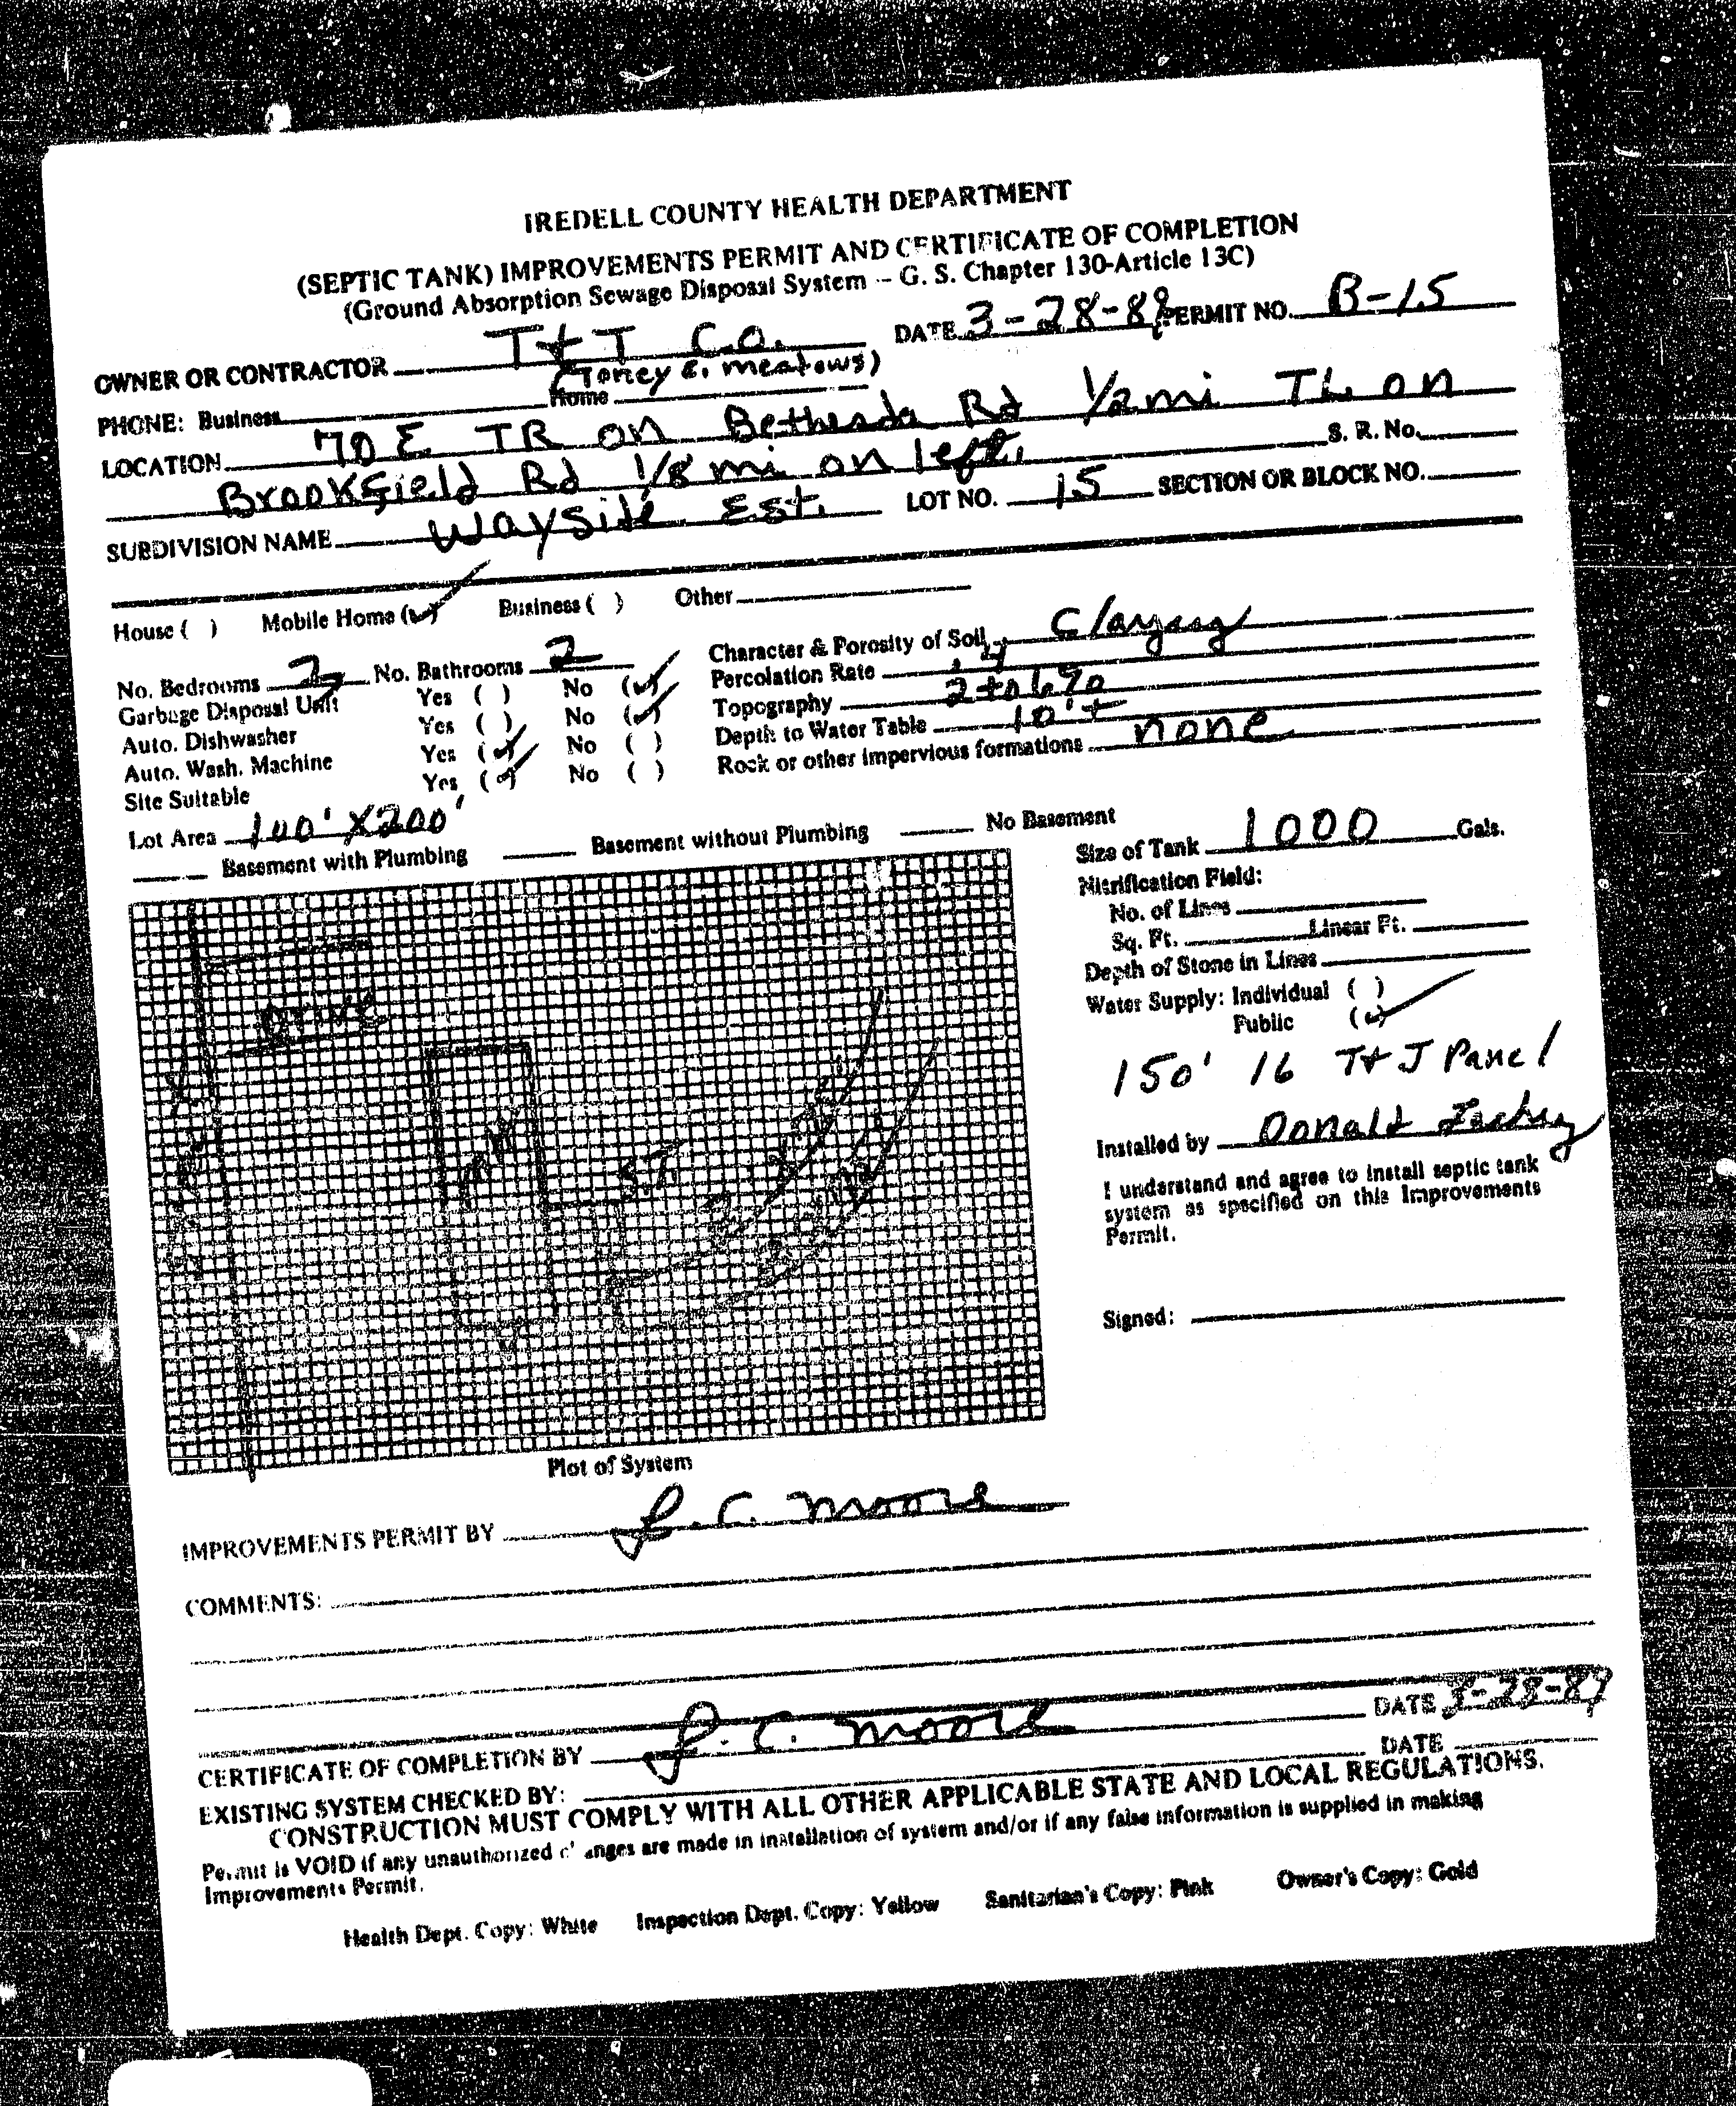 IREDELL COUNTY HEALTH DEPARTMENT
(SEPTIC TANK) IMPROVEMENTS PERMIT AND CERTIFICATE OF COMPLETION
(Ground Absorption Sewage Disposal System -- G. S. Chapter 130-Article 13C)
OWNER OR CONTRACTOR T + T Co. DATE 3-28-89 PERMIT NO. B-15
(Toney E. meadows)
PHONE: Business Home
LOCATION 70 E TR on Bethesda Rd 1/2 mi TL on
Brookfield Rd 1/8 mi on left. S. R. No.
SUBDIVISION NAME Wayside Est. LOT NO. 15 SECTION OR BLOCK NO.
House ( ) Mobile Home (✓) Business ( ) Other
No. Bedrooms 2 No. Bathrooms 2
Garbage Disposal Unit Yes ( ) No (✓)
Auto. Dishwasher Yes ( ) No (✓)
Auto. Wash. Machine Yes (✓) No ( )
Site Suitable Yes (✓) No ( )
Lot Area 100' X 200'
Character & Porosity of Soil Clayey
Percolation Rate
Topography 2 to 6%
Depth to Water Table 10'+
Rock or other impervious formations none
Basement with Plumbing Basement without Plumbing No Basement
Drive
M H
S.T.
Plot of System
Size of Tank 1000 Gals.
Nitrification Field:
No. of Lines
Sq. Ft. Linear Ft.
Depth of Stone in Lines
Water Supply: Individual ( )
Public (✓)
150' 16 T+J Panel
Installed by Donald
I understand and agree to install septic tank
system as specified on this Improvements
Permit.
Signed:
IMPROVEMENTS PERMIT BY J. C. Moore
COMMENTS:
CERTIFICATE OF COMPLETION BY J. C. Moore DATE 3-28-89
EXISTING SYSTEM CHECKED BY: DATE
CONSTRUCTION MUST COMPLY WITH ALL OTHER APPLICABLE STATE AND LOCAL REGULATIONS.
Permit is VOID if any unauthorized changes are made in installation of system and/or if any false information is supplied in making
Improvements Permit.
Health Dept. Copy: White Inspection Dept. Copy: Yellow Sanitarian's Copy: Pink Owner's Copy: Gold